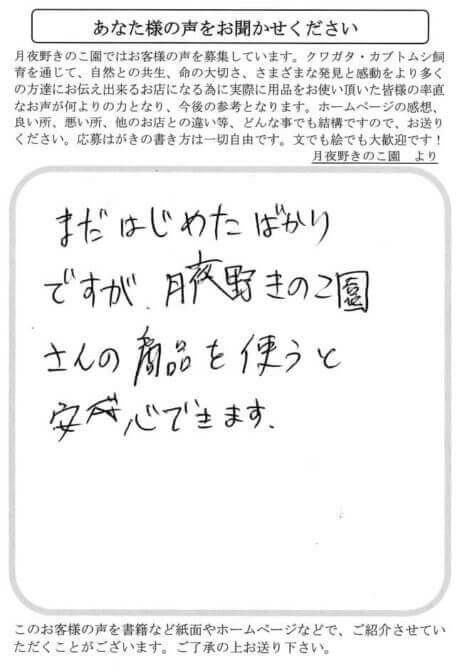 あなた様の声をお聞かせください
月夜野きのこ園ではお客様の声を募集しています。クワガタ・カブトムシ飼
育を通じて、自然との共生、命の大切さ、さまざまな発見と感動をより多く
の方達にお伝え出来るお店になる為に実際に用品をお使い頂いた皆様の率直
なお声が何よりの力となり、今後の参考となります。ホームページの感想、
良い所、悪い所、他のお店との違い等、どんな事でも結構ですので、お送り
ください。応募はがきの書き方は一切自由です。文でも絵でも大歓迎です！
月夜野きのこ園　より
まだはじめたばかり
ですが、月夜野きのこ園
さんの商品を使うと
安心できます。
このお客様の声を書籍など紙面やホームページなどで、ご紹介させてい
ただくことがございます。ご了承の上お送り下さい。